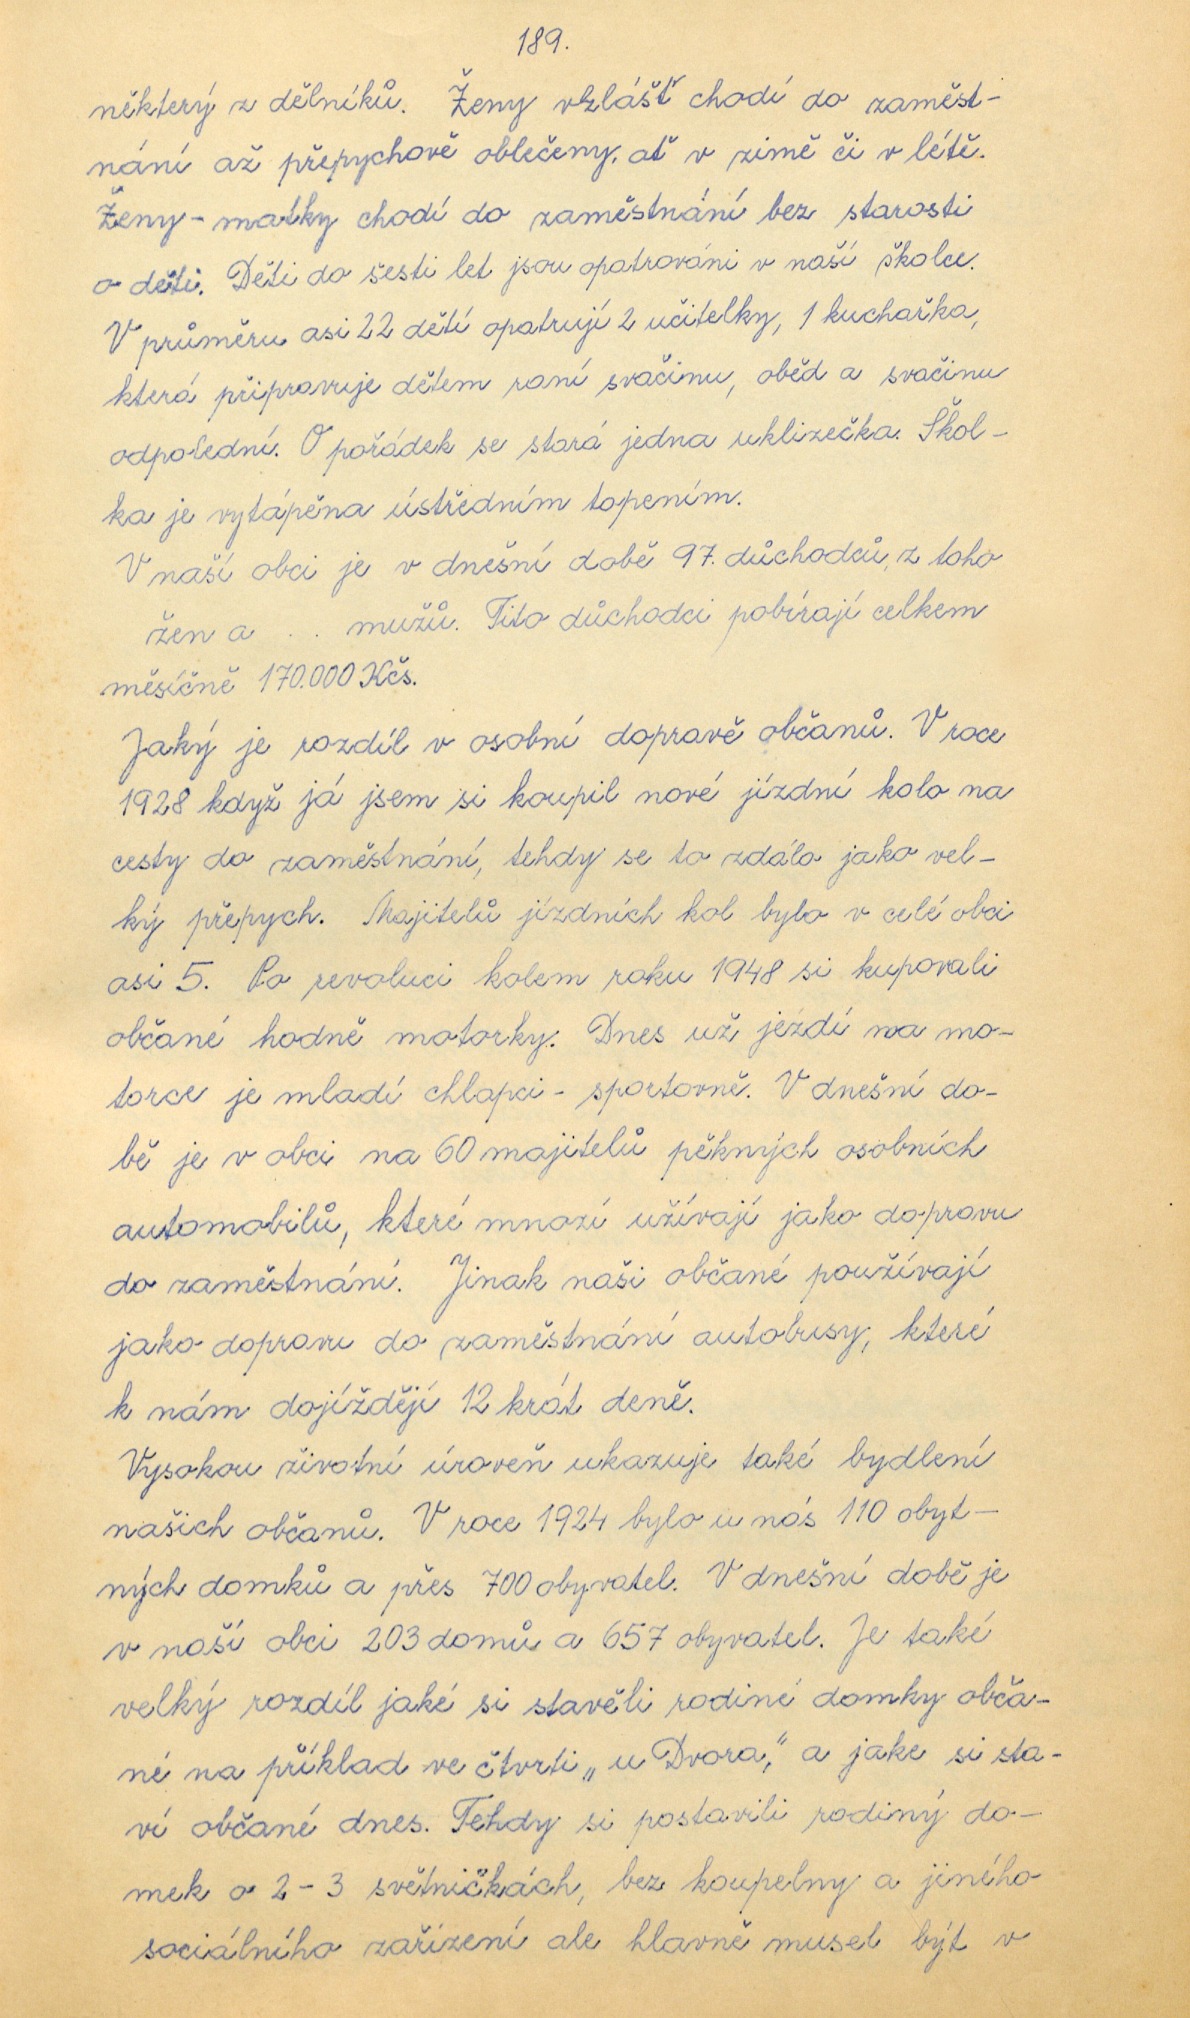 189.
některý z dělníků. Ženy vzlášť chodí do zaměst-
nání až přepychově oblečeny, ať v zimě či v létě.
Ženy - matky chodí do zaměstnání bez starosti
o děti. Děti do šesti let jsou opatrováni v naší školce.
V průměru asi 22 dětí opatrují 2 učitelky, 1 kuchařka,
která připravuje dětem raní svačinu, oběd a svačinu
odpolední. O pořádek se stará jedna uklizečka. Škol-
ka je vytápěna ústředním topením.
V naší obci je v dnešní době 97. důchodců, z toho
žen a . . mužů. Tito důchodci pobírají celkem
měsíčně 170.000 Kčs.
Jaký je rozdíl v osobní dopravě občanů. V roce
1928 když já jsem si koupil nové jízdní kolo na
cesty do zaměstnání, tehdy se to zdálo jako vel-
ký přepych. Majitelů jízdních kol bylo v celé obci
asi 5. Po revoluci kolem roku 1948 si kupovali
občané hodně motorky. Dnes už jezdí na mo-
torce je mladí chlapci - sportovně. V dnešní do-
bě je v obci na 60 majitelů pěkných osobních
automobilů, které mnozí užívají jako dopravu
do zaměstnání. Jinak naši občané používají
jako dopravu do zaměstnání autobusy, které
k nám dojíždějí 12 krát deně.
Vysokou životní úroveň ukazuje také bydlení
našich občanů. V roce 1924 bylo u nás 110 obyt-
ných domků a přes 700 obyvatel. V dnešní době je
v naší obci 203 domů a 657 obyvatel. Je také
velký rozdíl jaké si stavěli rodiné domky obča-
né na příklad ve čtvrti „u Dvora," a jake si sta-
ví občané dnes. Tehdy si postavili rodiný do-
mek o 2 - 3 světničkách, bez koupelny a jiného
sociálního zařízení ale hlavně musel být v